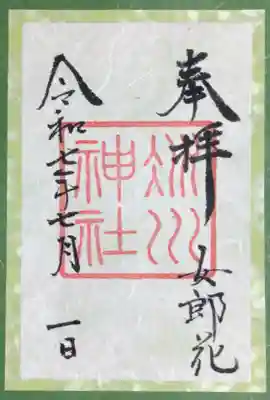 奉拝
女郎花
冰川
神社
令和七年七月
一日